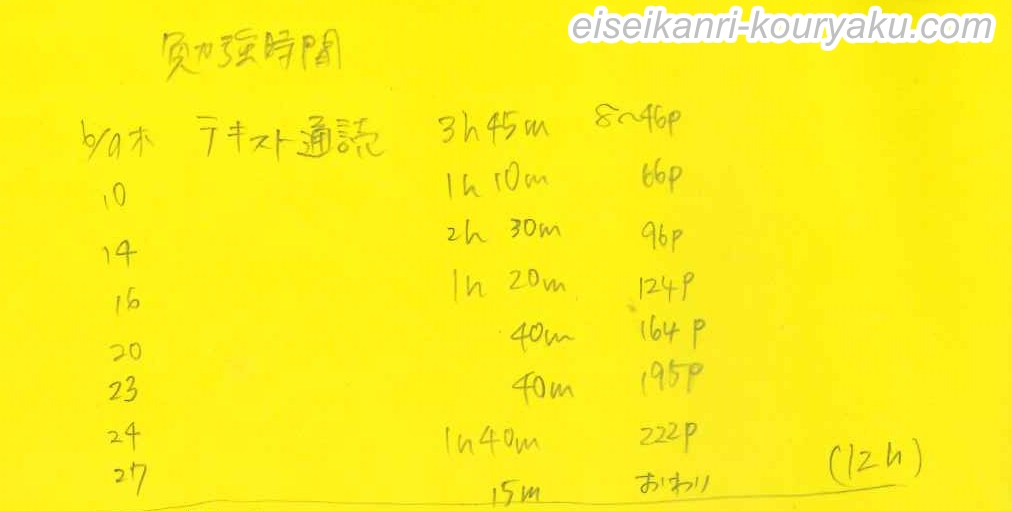 eiseikanri-kouryaku.com
勉強時間
6/9木 テキスト通読 3h45m 8~46p
10 1h 10m 66p
14 2h 30m 96p
16 1h 20m 124p
20 40m 164p
23 40m 195p
24 1h40m 222p
27 15m おわり (12h)